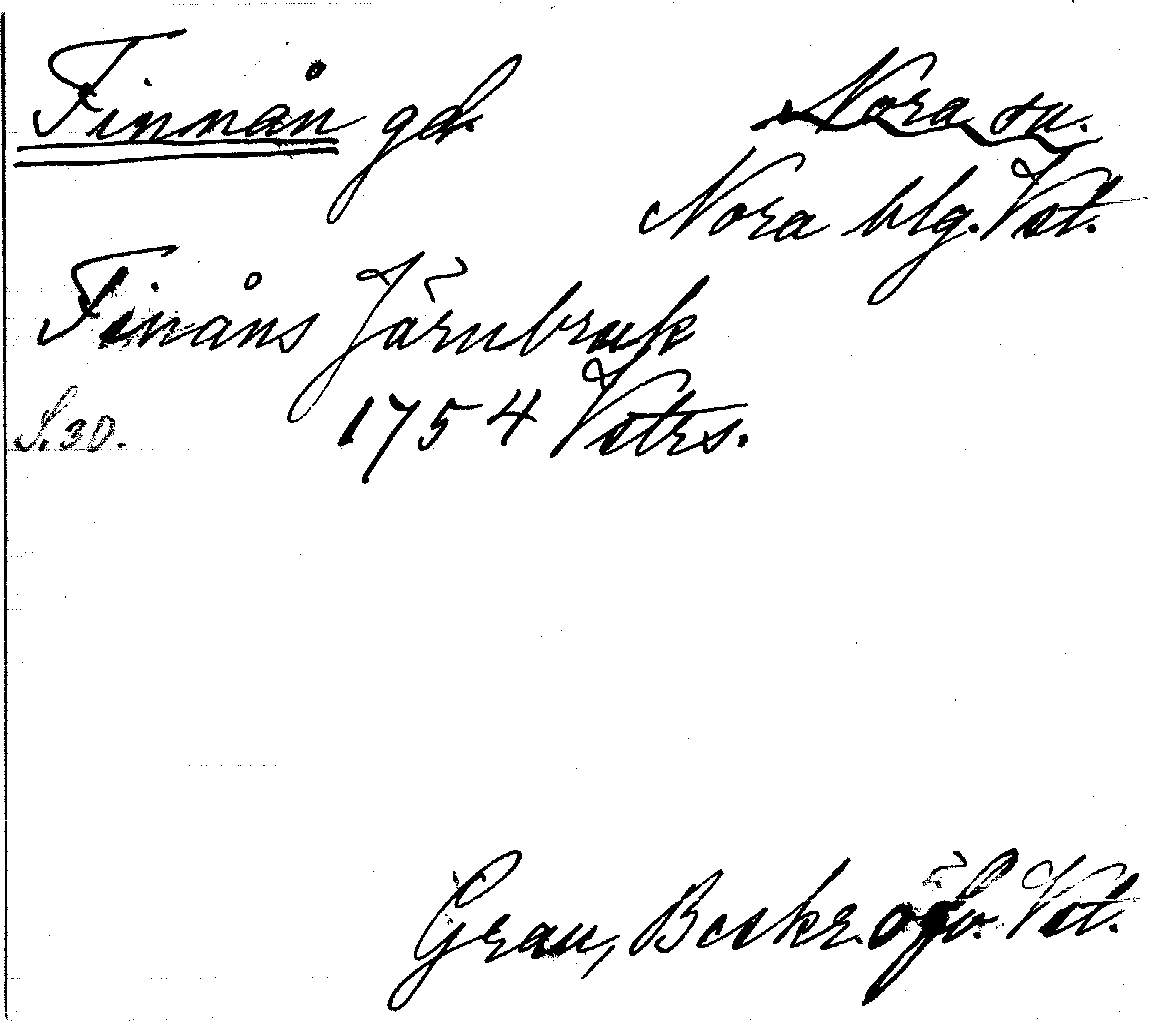 Finnån gd. Nora sn.
Nora blg. Vstm.
Finåns Järnbruk
S. 30. 1754 Vstrs.
Grau, Beskr. öfv. Vstm.